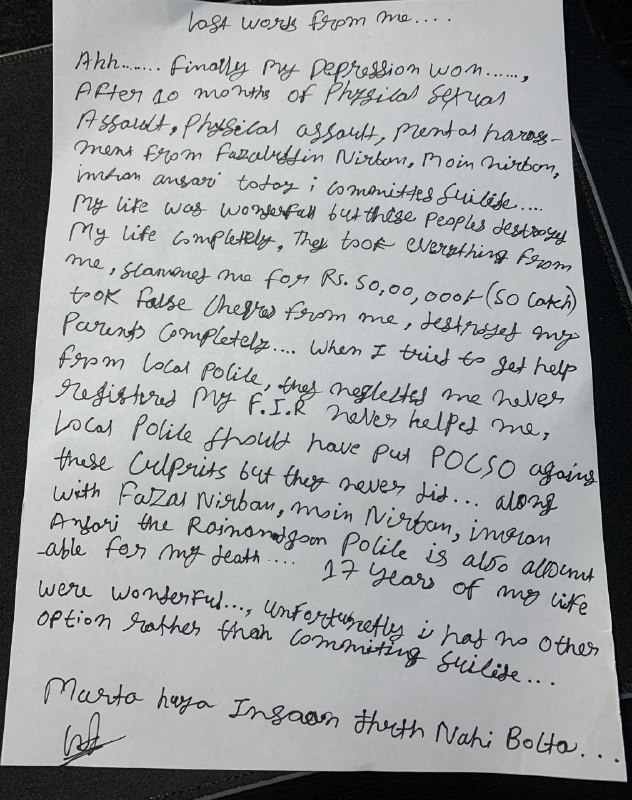 Last words from me....
Ahh....... finally my Depression won......,
After 10 months of Physical Sexual
Assault, Physical assault, mental haras-
ment from Fazaluddin Nirban, Moin nirban,
imran ansari today i committed Suicide....
My life was wonderfull but these peoples destroyed
My life completely, They took everything from
me, scammed me for Rs. 50,00,000/- (50 Lakh)
took false from me, destroyed my
Parents completely.... when I tried to get help
from local police, they neglected me never
registered my F.I.R never helped me,
Local Police should have put POCSO agains
these culprits but they never did... along
with Fazal Nirban, moin Nirban, imran
Ansari the Police is also account
-able for my death.... 17 years of my life
were wonderful..., unfortunetly i has no other
option rather than commiting Suicide...
Marta huya Insaan Nahi Bolta...